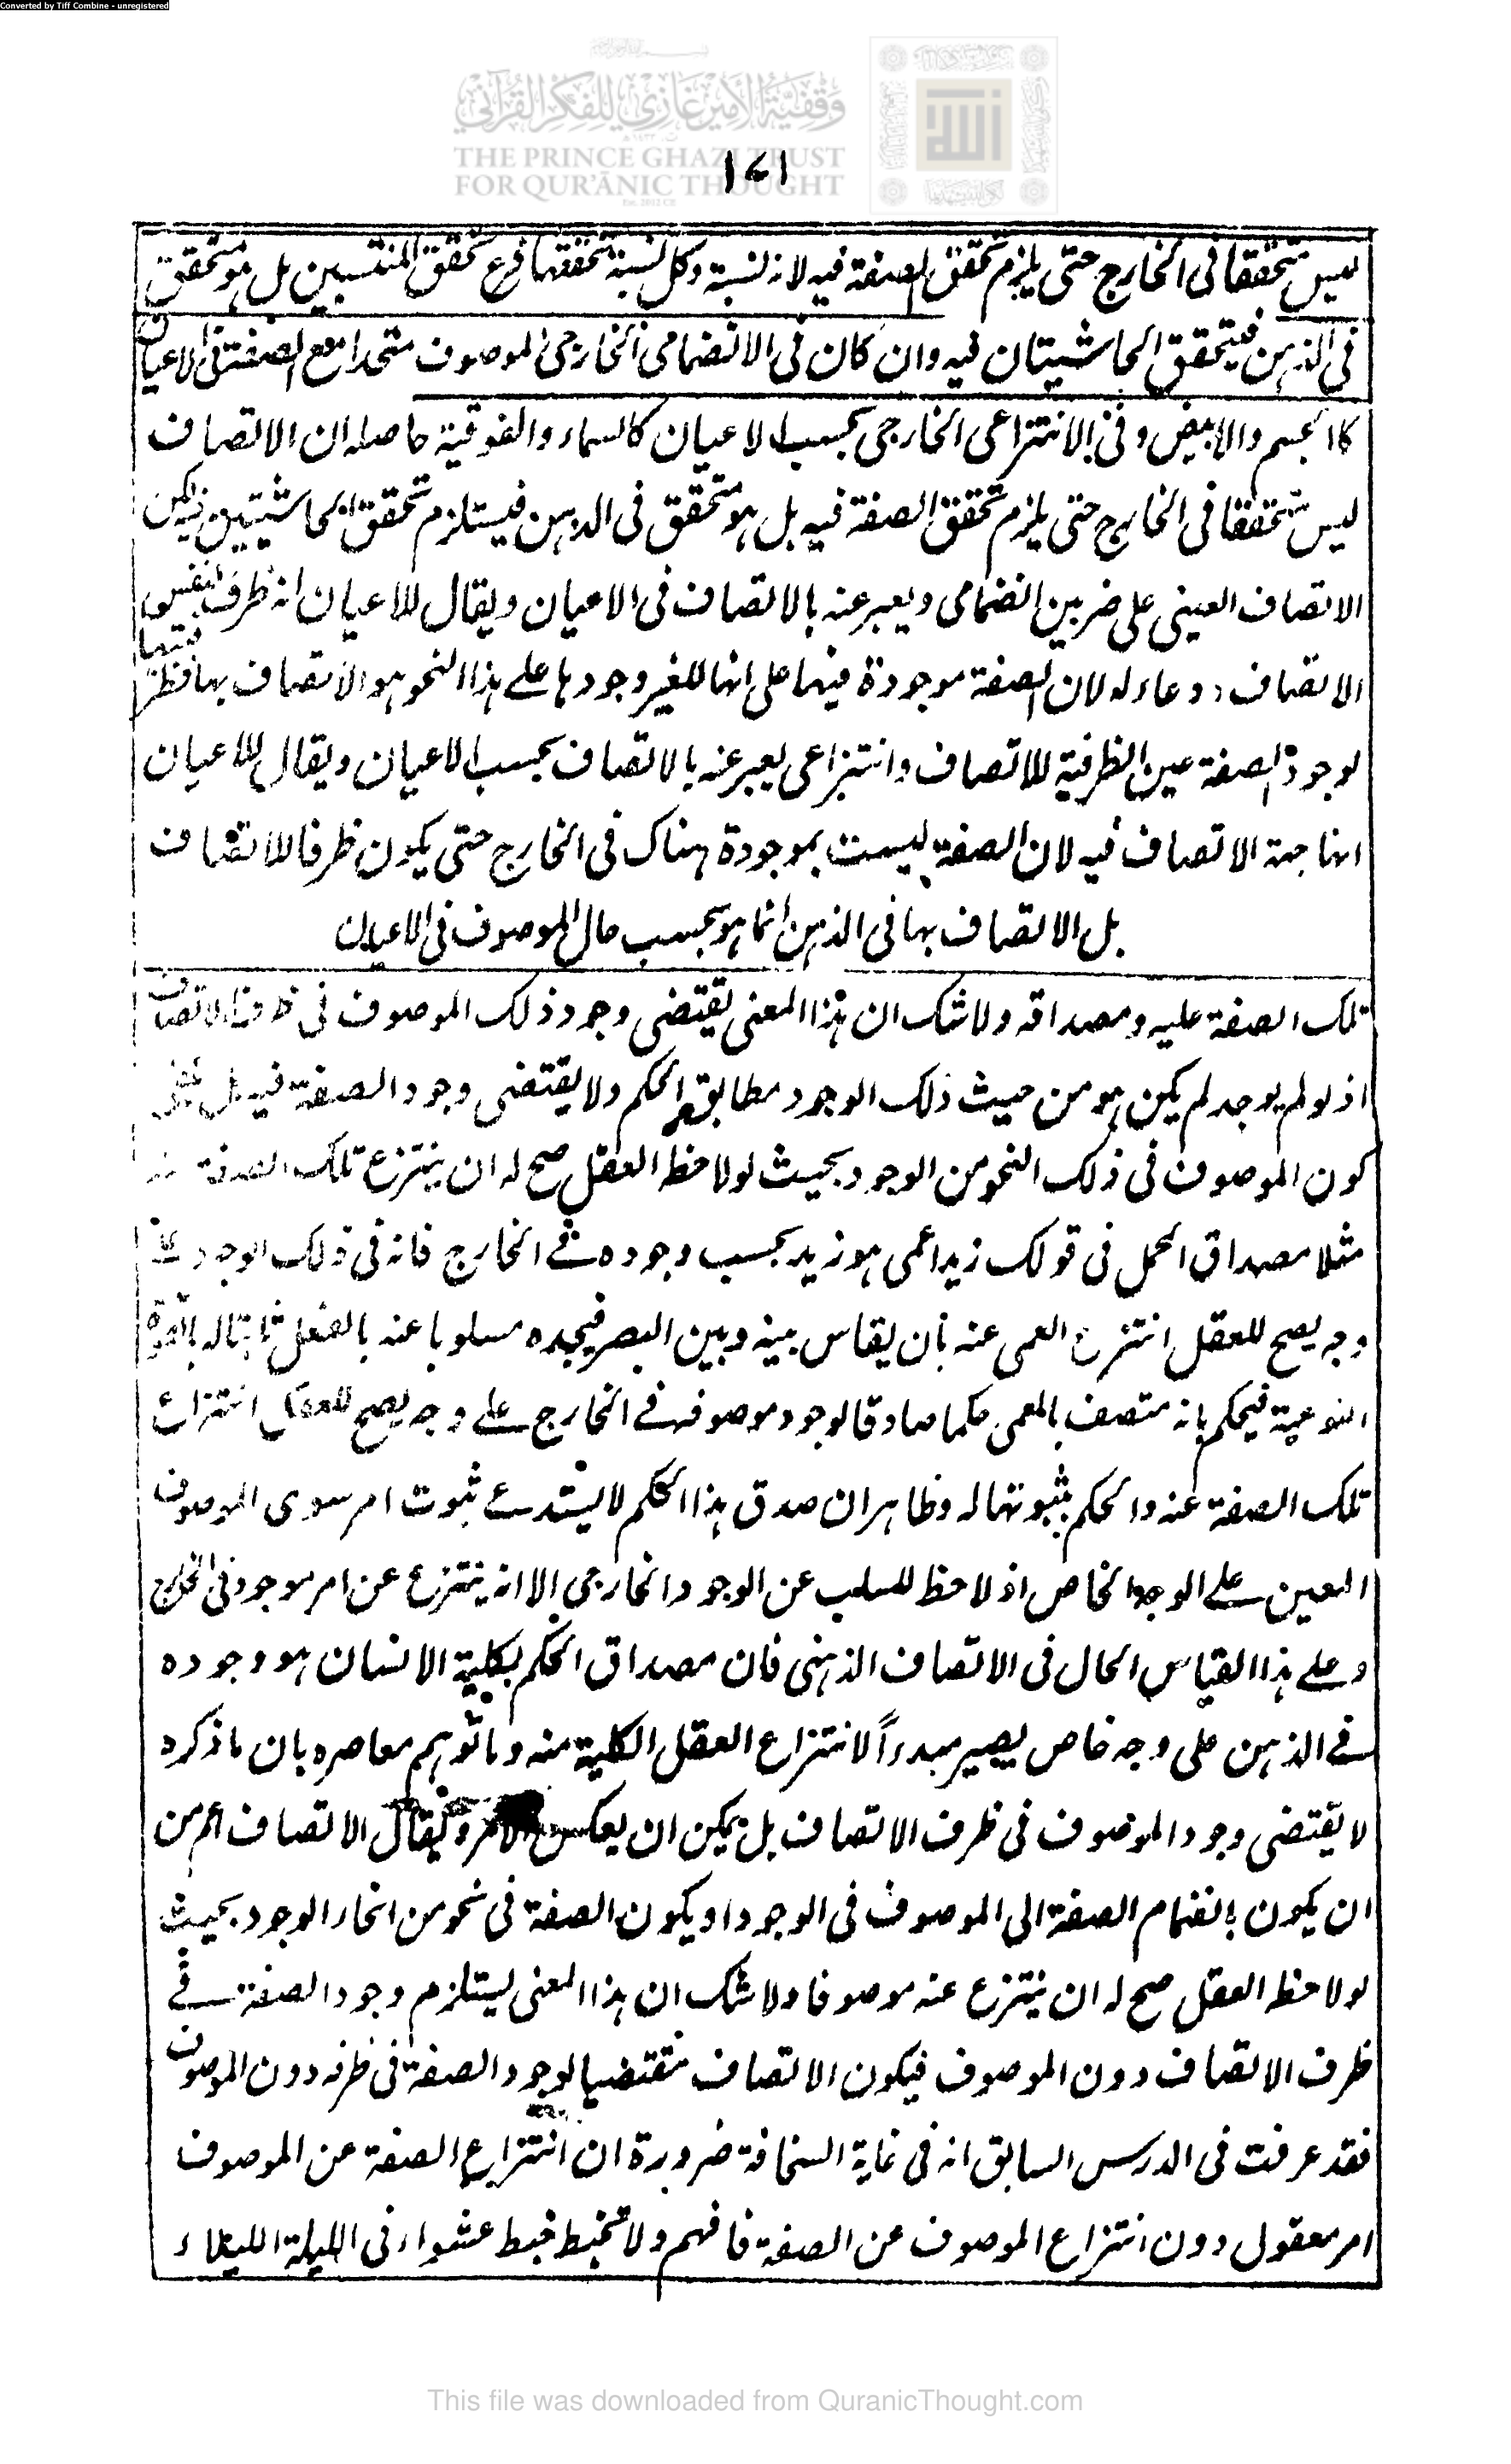 Converted by Tiff Combine - unregistered
وقفية الأمير غازي للفكر القرآني
THE PRINCE GHAZI TRUST
FOR QUR'ĀNIC THOUGHT
١٧١
ليس متحققا فى الخارج حتى يلزم تحقق الصفة فيه لانه نسبة وكل نسبة تحققها فرع تحقق المنتسبين بل هو متحقق
فى الذهن فيتحقق الحاشيتان فيه وان كان فى الانضمامى الخارجى الموصوف متحدا مع الصفة فى الاعيان
كالجسم والابيض وفى الانتزاعى الخارجى بحسب الاعيان كالسماء والفوقية حاصله ان الاتصاف
ليس متحققا فى الخارج حتى يلزم تحقق الصفة فيه بل هو متحقق فى الذهن فيستلزم تحقق الحاشيتين فيه لكن
الاتصاف العينى على ضربين انضمامى ويعبر عنه بالاتصاف فى الاعيان ويقال للاعيان انه ظرف لنفس
الاتصاف ووعاء له لان الصفة موجودة فيها على انها للغير وجودها على هذا النحو هو الاتصاف بها فظرفيتها
لوجود الصفة عين الظرفية للاتصاف وانتزاعى يعبر عنه بالاتصاف بحسب الاعيان ويقال للاعيان
انها جهة الاتصاف فيه لان الصفة ليست بموجودة هناك فى الخارج حتى يكون ظرفا للاتصاف
بل الاتصاف بها فى الذهن انما هو بحسب حال الموصوف فى الاعيان
تلك الصفة عليه ومصداقه ولا شك ان هذا المعنى يقتضى وجود ذلك الموصوف فى ظرف الاتصاف
اذ لو لم يوجد لم يكن هو من حيث ذلك الوجود مطابق الحكم ولا يقتضى وجود الصفة فيه بل يكفى
كون الموصوف فى ذلك النحو من الوجود بحيث لو لاحظه العقل صح له ان ينتزع تلك الصفة عنه
مثلا مصداق الحمل فى قولك زيد اعمى هو زيد بحسب وجوده فى الخارج فانه فى ذلك الوجود على
وجه يصح للعقل انتزاع العمى عنه بان يقاس بينه وبين البصر فيجده مسلوبا عنه بالفعل ثابتا له بالقوة
النوعية فيحكم بانه متصف بالعمى حكما صادقا لوجود موصوفه فى الخارج على وجه يصح للعقل انتزاع
تلك الصفة عنه والحكم بثبوتها له وظاهر ان صدق هذا الحكم لا يستدعى ثبوت امر سوى الموصوف
المعين على الوجه الخاص اذ لا حظ للسلب عن الوجود الخارجى الا انه ينتزع عن امر موجود فى الخارج
وعلى هذا القياس الحال فى الاتصاف الذهنى فان مصداق الحكم بكلية الانسان هو وجوده
فى الذهن على وجه خاص يصير مبدءاً لانتزاع العقل الكلية منه وما توهم معاصره بان ما ذكره
لا يقتضى وجود الموصوف فى ظرف الاتصاف بل يمكن ان يعكس الامر ويقال الاتصاف اعم من
ان يكون بانضمام الصفة الى الموصوف فى الوجود او يكون الصفة فى نحو من انحاء الوجود بحيث
لو لاحظه العقل صح له ان ينتزع عنه موصوفا ولا شك ان هذا المعنى يستلزم وجود الصفة فى
ظرف الاتصاف دون الموصوف فيكون الاتصاف مقتضيا لوجود الصفة فى ظرفه دون الموصوف
فقد عرفت فى الدرس السابق انه فى غاية السخافة ضرورة ان انتزاع الصفة عن الموصوف
امر معقول دون انتزاع الموصوف عن الصفة فافهم ولا تخبط خبط عشواء فى الليلة الليلاء
This file was downloaded from QuranicThought.com